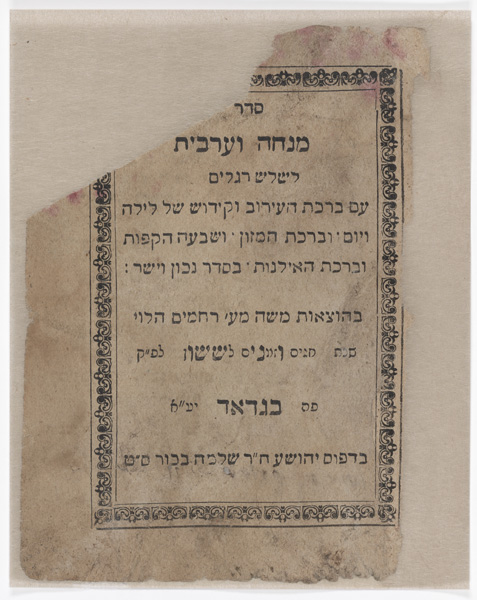 סדר
מנחה וערבית
לשלש רגלים
עם ברכת העירוב וקידוש של לילה
ויום ׳ וברכת המזון ׳ ושבעה הקפות
וברכת האילנות ׳ בסדר נכון וישר :
בהוצאות משה מע׳ רחמים הלוי
שנת לששון לפ״ק
פה בגדאד יע״א
בדפוס יהושע ח״ר שלמה בכור ס״ט